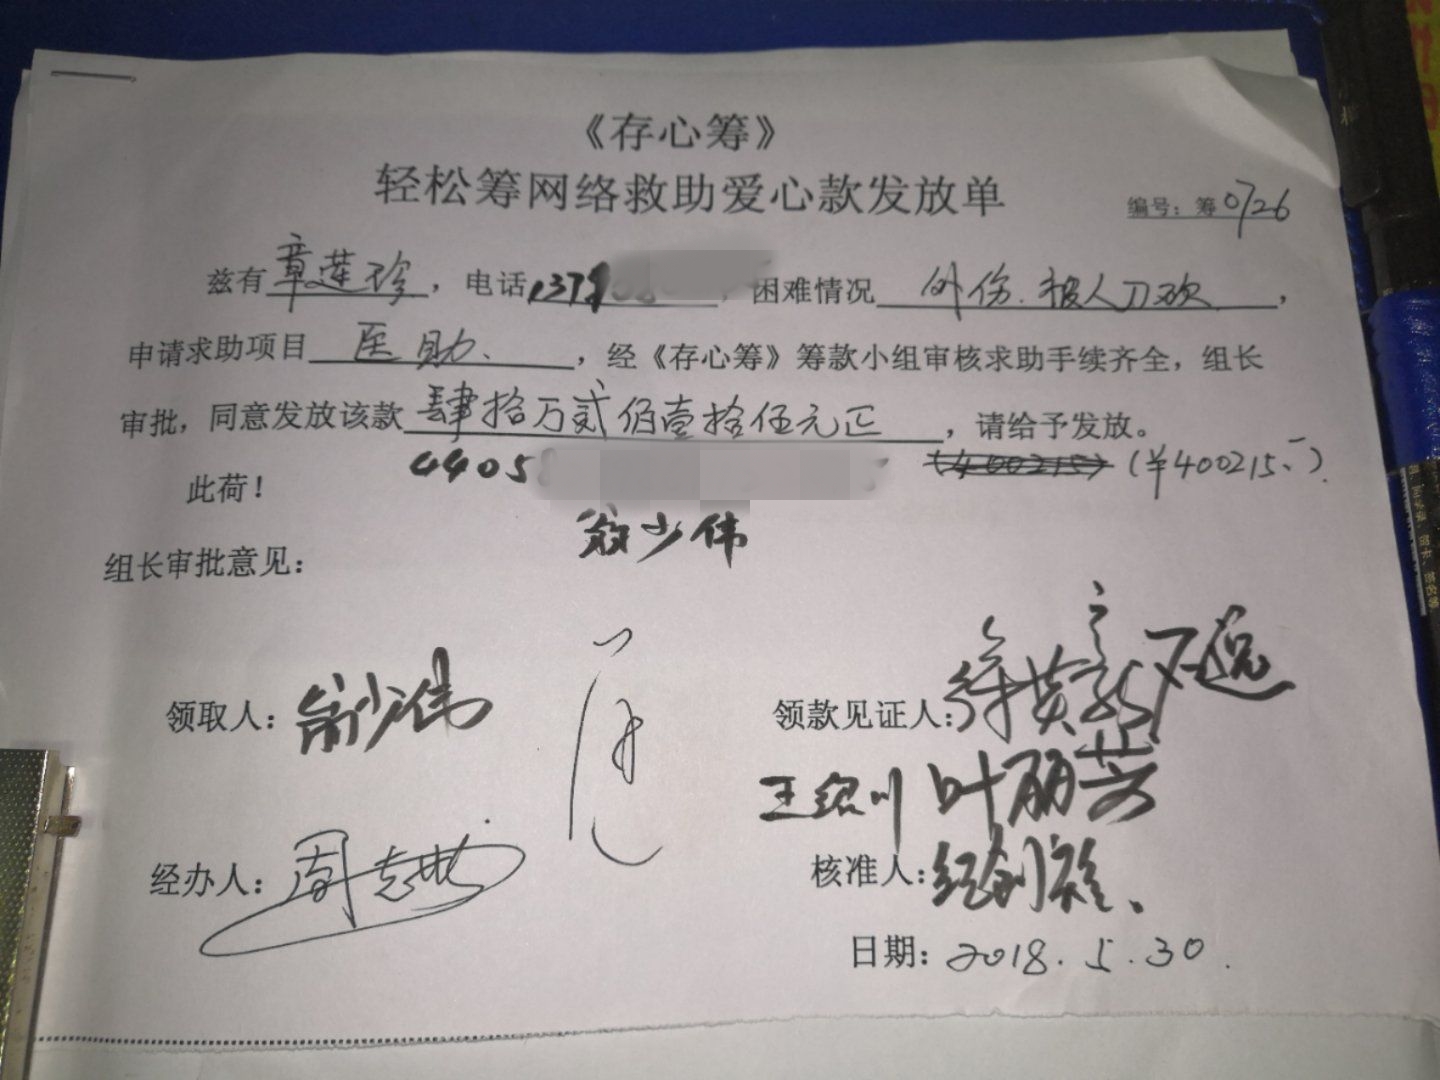 《存心筹》
轻松筹网络救助爱心款发放单
编号：筹0126
兹有章莲珍，电话1379，困难情况外伤.被人刀砍，
申请求助项目医助、，经《存心筹》筹款小组审核求助手续齐全，组长
审批，同意发放该款肆拾万贰佰壹拾伍元正，请给予发放。
4405 (¥400215.-)
此荷！
少伟
组长审批意见：
领取人：少伟 领款见证人：
王绍川 叶丽芳
经办人：周 核准人：
日期：2018.5.30.